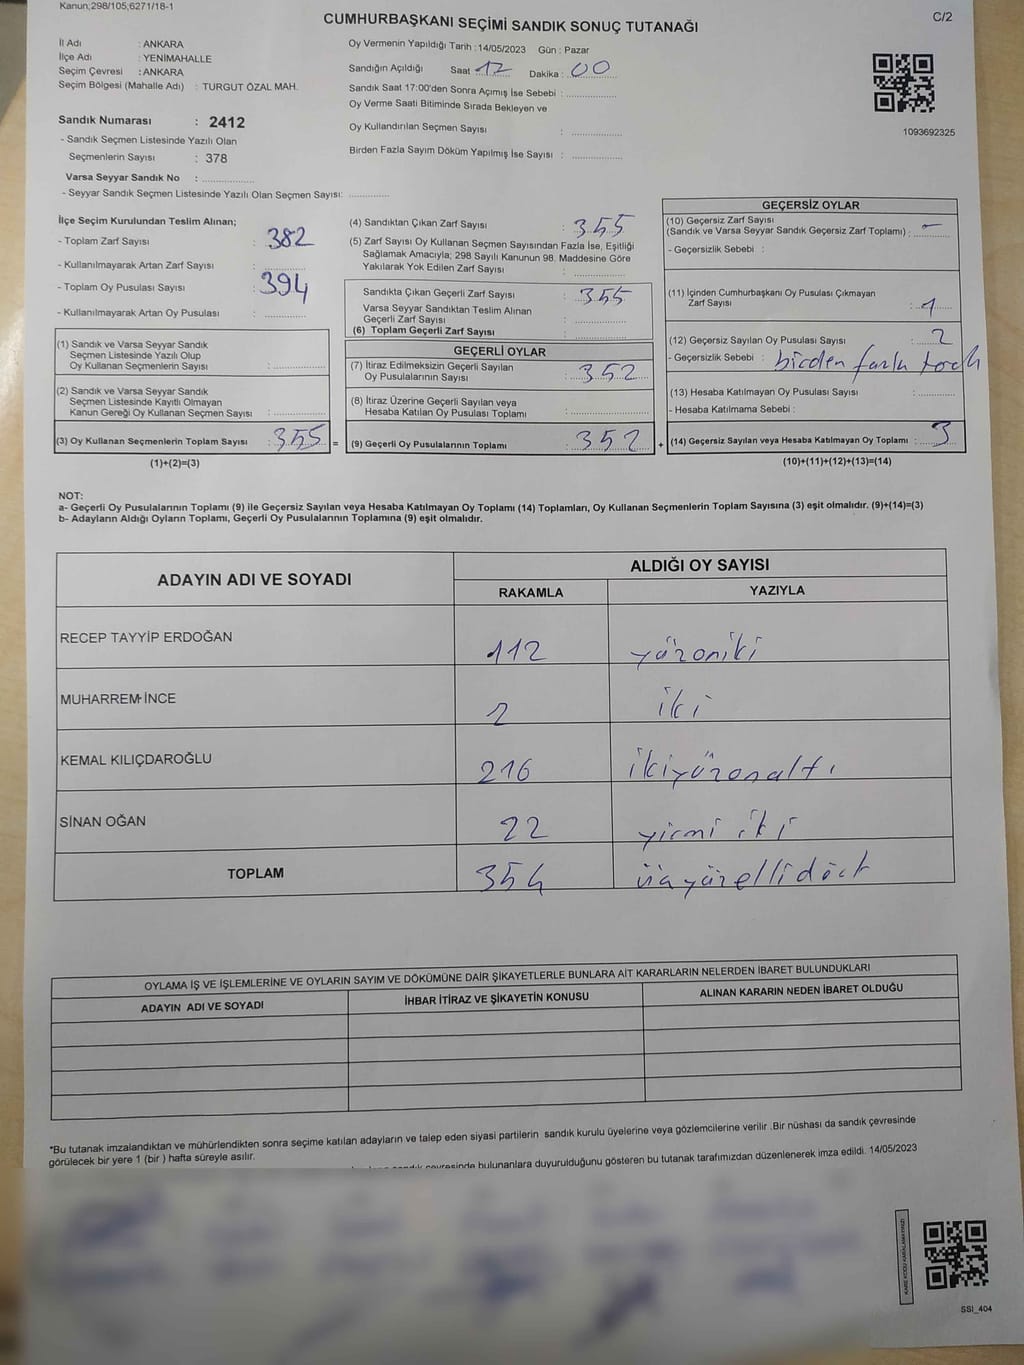 Kanun;298/105,6271/18-1
C/2
CUMHURBAŞKANI SEÇİMİ SANDIK SONUÇ TUTANAĞI
İl Adı : ANKARA
İlçe Adı : YENİMAHALLE
Seçim Çevresi : ANKARA
Seçim Bölgesi (Mahalle Adı) : TURGUT ÖZAL MAH.
Sandık Numarası : 2412
- Sandık Seçmen Listesinde Yazılı Olan
Seçmenlerin Sayısı : 378
Varsa Seyyar Sandık No : ..............
- Seyyar Sandık Seçmen Listesinde Yazılı Olan Seçmen Sayısı: ............
Oy Vermenin Yapıldığı Tarih : 14/05/2023 Gün : Pazar
Sandığın Açıldığı Saat 17 Dakika : 00
Sandık Saat 17:00'den Sonra Açımış İse Sebebi : ..............
Oy Verme Saati Bitiminde Sırada Bekleyen ve
Oy Kullandırılan Seçmen Sayısı : ..............
Birden Fazla Sayım Döküm Yapılmış İse Sayısı : ..............
1093692325
İlçe Seçim Kurulundan Teslim Alınan;
- Toplam Zarf Sayısı : 382
- Kullanılmayarak Artan Zarf Sayısı : ............
- Toplam Oy Pusulası Sayısı : 394
- Kullanılmayarak Artan Oy Pusulası : ............
(1) Sandık ve Varsa Seyyar Sandık
Seçmen Listesinde Yazılı Olup
Oy Kullanan Seçmenlerin Sayısı : ..............
(2) Sandık ve Varsa Seyyar Sandık
Seçmen Listesinde Kayıtlı Olmayan
Kanun Gereği Oy Kullanan Seçmen Sayısı : ..............
(3) Oy Kullanan Seçmenlerin Toplam Sayısı : 355 =
(1)+(2)=(3)
(4) Sandıktan Çıkan Zarf Sayısı : 355
(5) Zarf Sayısı Oy Kullanan Seçmen Sayısından Fazla İse, Eşitliği
Sağlamak Amacıyla; 298 Sayılı Kanunun 98. Maddesine Göre
Yakılarak Yok Edilen Zarf Sayısı : ..............
Sandıkta Çıkan Geçerli Zarf Sayısı : 355
Varsa Seyyar Sandıktan Teslim Alınan
Geçerli Zarf Sayısı : ..............
(6) Toplam Geçerli Zarf Sayısı : ..............
GEÇERLİ OYLAR
(7) İtiraz Edilmeksizin Geçerli Sayılan
Oy Pusulalarının Sayısı : 352
(8) İtiraz Üzerine Geçerli Sayılan veya
Hesaba Katılan Oy Pusulası Toplamı : ..............
(9) Geçerli Oy Pusulalarının Toplamı : 352 +
GEÇERSİZ OYLAR
(10) Geçersiz Zarf Sayısı
(Sandık ve Varsa Seyyar Sandık Geçersiz Zarf Toplamı) : -
- Geçersizlik Sebebi :
(11) İçinden Cumhurbaşkanı Oy Pusulası Çıkmayan
Zarf Sayısı : 1
(12) Geçersiz Sayılan Oy Pusulası Sayısı : 2
- Geçersizlik Sebebi : birden fazla
(13) Hesaba Katılmayan Oy Pusulası Sayısı : ............
- Hesaba Katılmama Sebebi :
(14) Geçersiz Sayılan veya Hesaba Katılmayan Oy Toplamı : 3
(10)+(11)+(12)+(13)=(14)
NOT:
a- Geçerli Oy Pusulalarının Toplamı (9) ile Geçersiz Sayılan veya Hesaba Katılmayan Oy Toplamı (14) Toplamları, Oy Kullanan Seçmenlerin Toplam Sayısına (3) eşit olmalıdır. (9)+(14)=(3)
b- Adayların Aldığı Oyların Toplamı, Geçerli Oy Pusulalarının Toplamına (9) eşit olmalıdır.
ADAYIN ADI VE SOYADI
ALDIĞI OY SAYISI
RAKAMLA YAZIYLA
RECEP TAYYİP ERDOĞAN 112 yüzoniki
MUHARREM İNCE 2 iki
KEMAL KILIÇDAROĞLU 216 ikiyüzonaltı
SİNAN OĞAN 22 yirmi iki
TOPLAM 354 üçyüzellidört
OYLAMA İŞ VE İŞLEMLERİNE VE OYLARIN SAYIM VE DÖKÜMÜNE DAİR ŞİKAYETLERLE BUNLARA AİT KARARLARIN NELERDEN İBARET BULUNDUKLARI
ADAYIN ADI VE SOYADI İHBAR İTİRAZ VE ŞİKAYETİN KONUSU ALINAN KARARIN NEDEN İBARET OLDUĞU
*Bu tutanak imzalandıktan ve mühürlendikten sonra seçime katılan adayların ve talep eden siyasi partilerin sandık kurulu üyelerine veya gözlemcilerine verilir .Bir nüshası da sandık çevresinde
görülecek bir yere 1 (bir ) hafta süreyle asılır.
sandık çevresinde bulunanlara duyurulduğunu gösteren bu tutanak tarafımızdan düzenlenerek imza edildi. 14/05/2023
KARE KODU KARALAMAYINIZ!
SSI_404